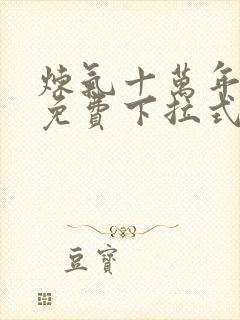 煉氣十萬年
免費下拉式
豆寶